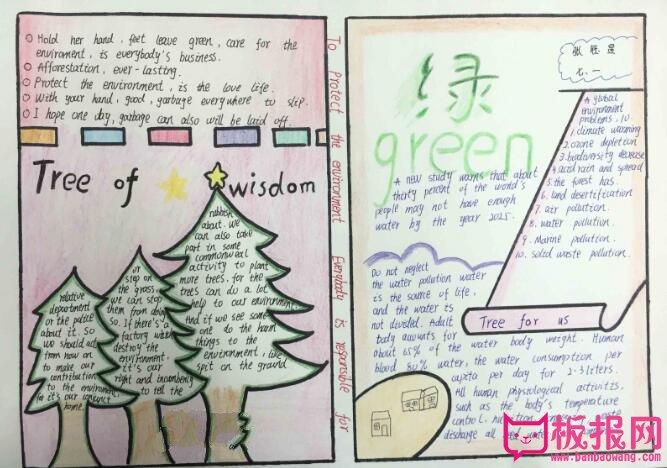 Hold her hand, feet leave green, care for the
enviroment, is everybody's business.
Afforestation, ever-lasting.
Protect the environment, is the love life.
With your hand, good, garbage everywhere to slip.
I hope one day, garbage can also will be laid off.
Tree of wisdom
rubbish
about. we
can also take
part in some
commonweal
activity to plant
more trees. for the
trees can do a lot
help to our environment
And if we see some
one do the harm
things to the
environment, like
spit on the ground
or
step on
the grass,
we can stop
them from doing
so. If there's a
factory which
destroy the
environment,
it's our
right and incumbency
to tell the
relative
department
or the police
about it. So
we should act
from now on
to make our
contribution
to the environment,
for it's our
home.
To Protect the environment Everybody is responsible for
绿
green
七.一
A new study warns that about
thirty percent of the world's
people may not have enough
water by the year 2025.
A global
environment
problems, 10.
1. climate warming
2. ozone depletion
3. biodiversity decrease
4. acid rain and spread
5. the forest has.
6. land desertification
7. air pollution.
8. water pollution.
9. Marine pollution.
10. solid waste pollution.
Tree for us
Do not neglect
the water pollution water
is the source of life.
and the water is
not divided. Adult
body accounts for
about 65% of the water body weight. Human
blood 80% water, the water consumption per
capita per day for 2-3 liters.
All human physiological activities,
such as the body's temperature
control. nutrition
discharge all
板报网
www.banbaowang.com